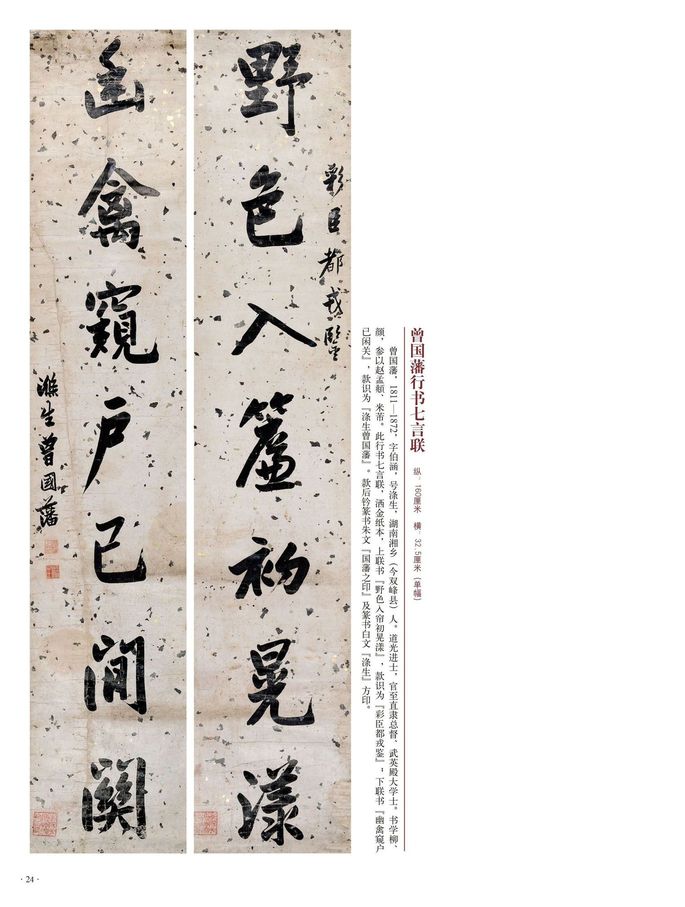 曾国藩行书七言联
纵 160厘米 横 32.5厘米（单幅）
曾国藩，1811—1872，字伯涵，号涤生，湖南湘乡（今双峰县）人。道光进士，官至直隶总督、武英殿大学士。书学柳、
颜，参以赵孟頫、米芾。此行书七言联，洒金纸本，上联书『野色入帘初晃漾』，款识为『彩臣都戎鉴』；下联书『幽禽窥户
已闲关』，款识为『涤生曾国藩』。款后钤篆书朱文『国藩之印』及篆书白文『涤生』方印。
彩臣都戎鑒
野色入簾初晃漾
幽禽窺户已閒關
滌生曾國藩
·24·